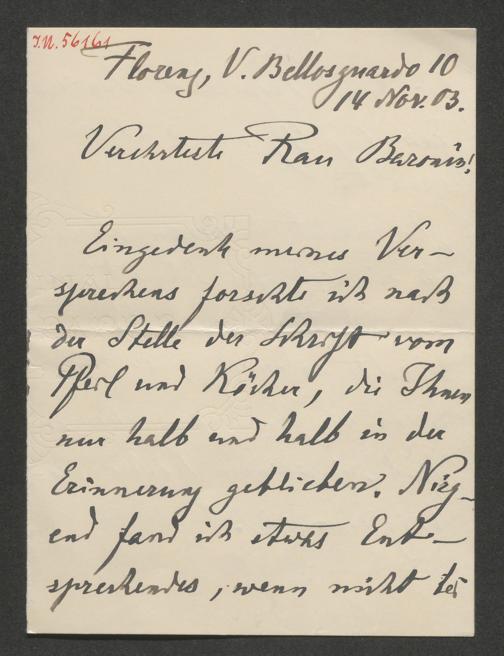 I.N. 56161
Florenz, V. Bellosguardo 10
14 Nov. 03.
Verehrteste Frau Baronin!
Eingedenk meines Ver-
sprechens forschte ich nach
der Stelle der Schrift vom
Pfeil und Köcher, die Ihnen
nur halb und halb in der
Erinnerung geblieben. Nirg-
end fand ich etwas Ent-
sprechendes, wenn nicht bei